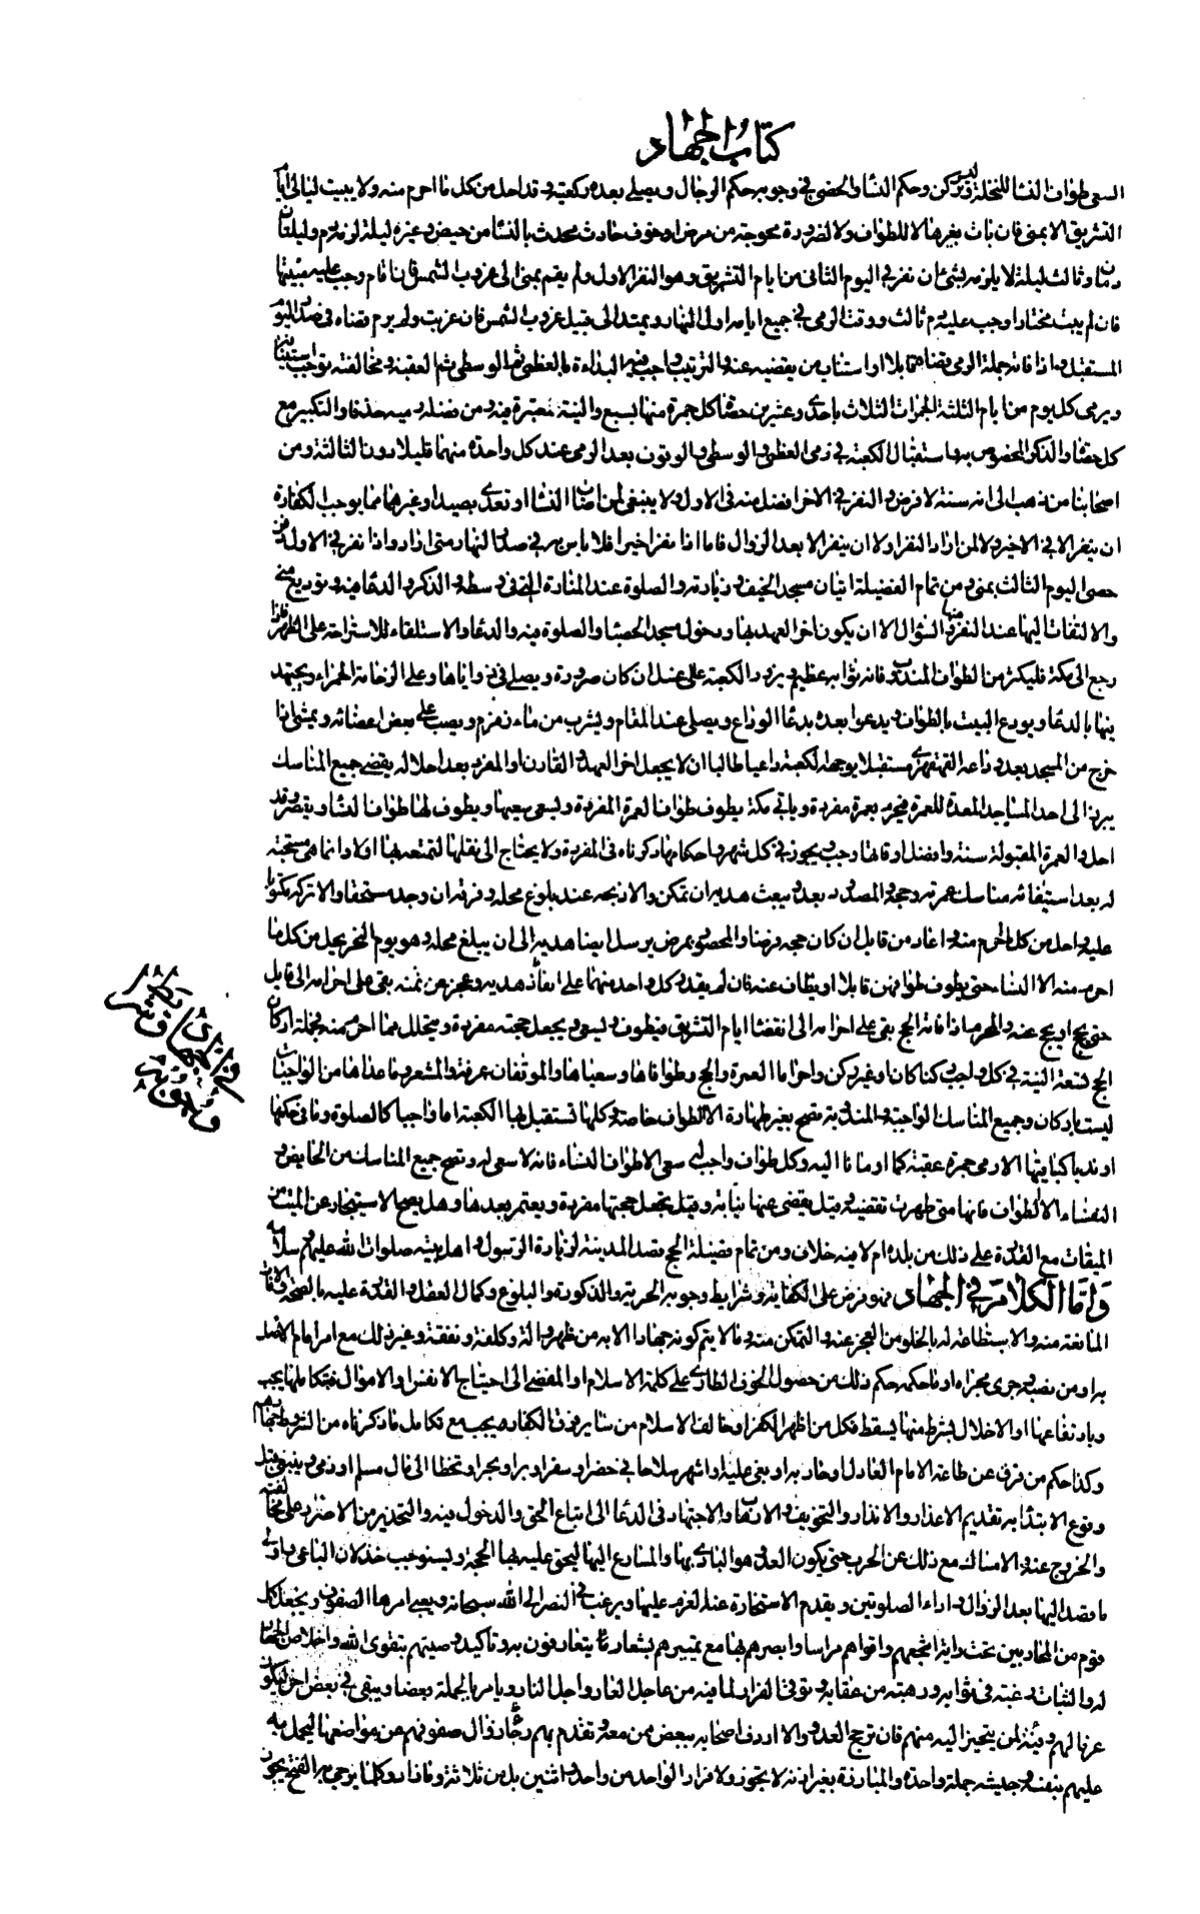 كتاب الجهاد
السعى طواف النساء للتحلة وليس بركن وحكم النساء والخصى فى وجوبه حكم الرجال ويصلى بعده ركعتيه وقد احل من كل ما احرم منه ولا يبيت ليالى ايام
التشريق الا بمنى فان بات بغيرها لا للطواف ولا لضرورة محوجة من مرض او خوف حادث محدث بالنساء من حيض وغيره ليلة لزم دم وليلتان
دمان وثالث ليلة لا يلزمه شئ ان نفر فى اليوم الثانى من ايام التشريق وهو النفر الاول ولم يقم بمنى الى غروب الشمس فان قام وجب عليه مبيتها
فان لم يبت مختارا وجب عليه دم ثالث ووقت الرمى فى جميع ايامه اول النهار ويمتد الى قبيل غروب الشمس فان غربت ولم يرم قضاه فى صدر اليوم
المستقبل واذا فاته جملة الرمى قضاه قابلا او استناب من يقضيه عنه والترتيب واجب فيه البداءة بالعظمى ثم الوسطى ثم العقبة ومخالفته توجب استينافه
ويرمى كل يوم من ايام الثلثة الجمرات الثلاث باحدى وعشرين حصاة كل جمرة منها بسبع والنية معتبرة فيه ومن فضله رميه حذفا والتكبير مع
كل حصاة والذكر المخصوص به واستقبال الكعبة فى رمى العظمى والوسطى والوقوف بعد الرمى عند كل واحدة منهما قليلا دون الثالثة ومن
اصحابنا من ذهب الى انه سنة لا فرض والنفر فى الاخر افضل منه فى الاول ولا ينبغى لمن اصاب النساء او تعدى بصيد او غيرها مما يوجب الكفارة
ان ينفر الا فى الاخير ولا لمن اراد النفر اولا ان ينفر الا بعد الزوال فاما اذا نفر اخيرا فلا باس به فى صدر النهار متى اراد واذا نفر فى الاول دفن
حصى اليوم الثالث بمنى ومن تمام الفضيلة اتيان مسجد الخيف وزيارته والصلوة عند المنارة التى فى وسطه والذكر والدعاء فيه وتوديع منى
والالتفات اليها عند النفر منها والسؤال الا ان يكون اخر العهد بها ودخول مسجد الحصباء والصلوة فيه والدعاء والاستلقاء للاستراحة على الظهر فاذا
رجع الى مكة فليكثر من الطواف المندوب فانه ثوابه عظيم ويزور الكعبة على غسل ان كان صرورة ويصلى فى زواياها وعلى الرخامة الحمراء ويجتهد
فيها بالدعاء ويودع البيت بالطواف ويدعوا بعده بدعاء الوداع ويصلى عند المقام ويشرب من ماء زمزم ويصب على بعض اعضائه ويمشى اذا
خرج من المسجد بعد وداعه القهقهرى مستقبلا بوجهه لكعبة داعيا طالبا ان لا يجعل اخر العهد والقارن او المفرد بعد احلاله يقضى جميع المناسك
يبرز الى احد المساجد المعدة للعمرة فيحرم بعمرة مفردة وياتى مكة يطوف طواف العمرة المفردة ويسعى سعيها ويطوف لها طواف النساء ويقصر وقد
احل والعمرة المقبولة سنة وافضل اوقاتها رجب ويجوز فى كل شهر واحكامها ذكرناه فى المفردة ولا يحتاج الى نقلها المتمتع بها اولا وانما هى مستحبة
له بعد استيفائه مناسك عمرته وحجه والمصدود بعدو يبعث هديه ان تمكن والا ذبحه عند بلوغ محله وفرقه ان وجد مستحقا والا تركه مكتوبا
عليه واحل من كل احرم منه واعاد من قابل ان كان حجه فرضا والمحصور بمرض يرسل ايضا هديه الى ان يبلغ محله وهو يوم النحر يحل من كل ما
احرم منه الا النساء حتى يطوف طوافهن قابلا او يطاف عنه فان لم يقدر كل واحد منهما على انفاذ هديه وعجز عن ثمنه بقى على احرامه الى قابل
حتى يحج او يحج عنه والمحرم اذا فاته الحج بقى على احرامه الى انقضاء ايام التشريق فيطوف ويسعى ويجعل حجته مفردة ويتحلل مما احرم منه فجملة اركان
الحج تسعة النية فى كل واجب ركنا كان او غير ركن واحراما العمرة والحج وطوافاها وسعياها والموقفان عرفة والمشعر وما عداها من الواجبات
ليست باركان وجميع المناسك الواجبة والمندوبة تصح بغير طهارة الا الطواف خاصة وكلها تستقبل بها الكعبة اما واجبا كالصلوة وما فى حكمها
او ندبا كباقيها الا رمى جمرة عقبة كما اومانا اليه وكل طواف واجب له سعى الا طواف النساء فانه لا سعى له وتصح جميع المناسك من الحايض و
النفساء الا الطواف فانها متى طهرت تقضيه وقيل يقضى عنها نيابة وقيل تجعل حجتها مفردة وتعتمر بعدها وهل يصح الاستيجار عن الميت من
الميقات مع القدرة على ذلك من بلده ام لا فيه خلاف ومن تمام فضيلة الحج قصد المدينة لزيارة الرسول واهل بيته صلوات الله عليهم وسلامه
واما الكلام فى الجهاد فهو فرض على الكفاية وشرايط وجوبه الحرية والذكورة والبلوغ وكمال العقل والقدرة عليه بالصحة والافات
المانعة منه والاستطاعة له بالخلو من العجز عنه والتمكن منه وما لا يتم كونه جهادا الا به من ظهر والة وكلفة ونفقة وغير ذلك مع امر امام الاصل
به او من نصبه وجرى مجراه او ما حكمه حكم ذلك من حصول الخوف الطارى على كلمة الاسلام او المفضى الى احتياج الانفس والاموال فبتكاملها يجب
وبارتفاعها او الاخلال بشرط منها يسقط فكل من اظهر الكفر او خالف الاسلام من سائر فرق الكفار يجب مع تكامل ما ذكرناه من الشروط جهادهم
وكذا حكم من مرق عن طاعة الامام العادل او حاربه او بغى عليه او اشهر سلاحا فى حضر او سفر او بر او بحر او تخطا الى مال مسلم او ذمى وينبغى قبل
وقوع الابتداء به تقديم الاعذار والانذار والتخويف والارهاب والاجتهاد فى الدعاء الى اتباع الحق والدخول فيه والتحذير من الاصرار على مخالفته
والخروج عنه والامساك مع ذلك عن الحرب حتى يكون العدو هو البادى بها والمسارع اليها ليحق عليه بها الحجة ويستوجب خذلان الباغى واولى
ما قصد اليها بعد الزوال واداء الصلوتين ويقدم الاستخارة عند العزم عليها ويرغب فى النصر الى الله سبحانه ويعبى امرها الصفوف ويجعل كل
قوم من المحاربين تحت راية اشجعهم واقواهم مراسا وابصرهم بها مع تمييزهم بشعار ما يتعارفون به وتاكيد وصيتهم بتقوى الله واخلاص الجهاد
له والثبات رغبة فى ثوابه ورهبة من عقابه وتوقى الفرار لما فيه من عاجل العار واجل النار ويامر بالحملة بعضا ويبقى فى بعض اخر ليكون
عزمالهم وفئة لمن يتحيز اليه منهم فان ترجح العدو والا اردف اصحابه ببعض من معه وتقدم بهم رجاء زال صفوفهم عن مواضعها ليحمل به
عليهم بنفسه وجيشه جملة واحدة والمبارزة بغير اذنه لا يجوز ولا فرار الواحد من واحد واثنين بل من ثلاثة وما زاد وكلما يرجى به الفتح يجوز